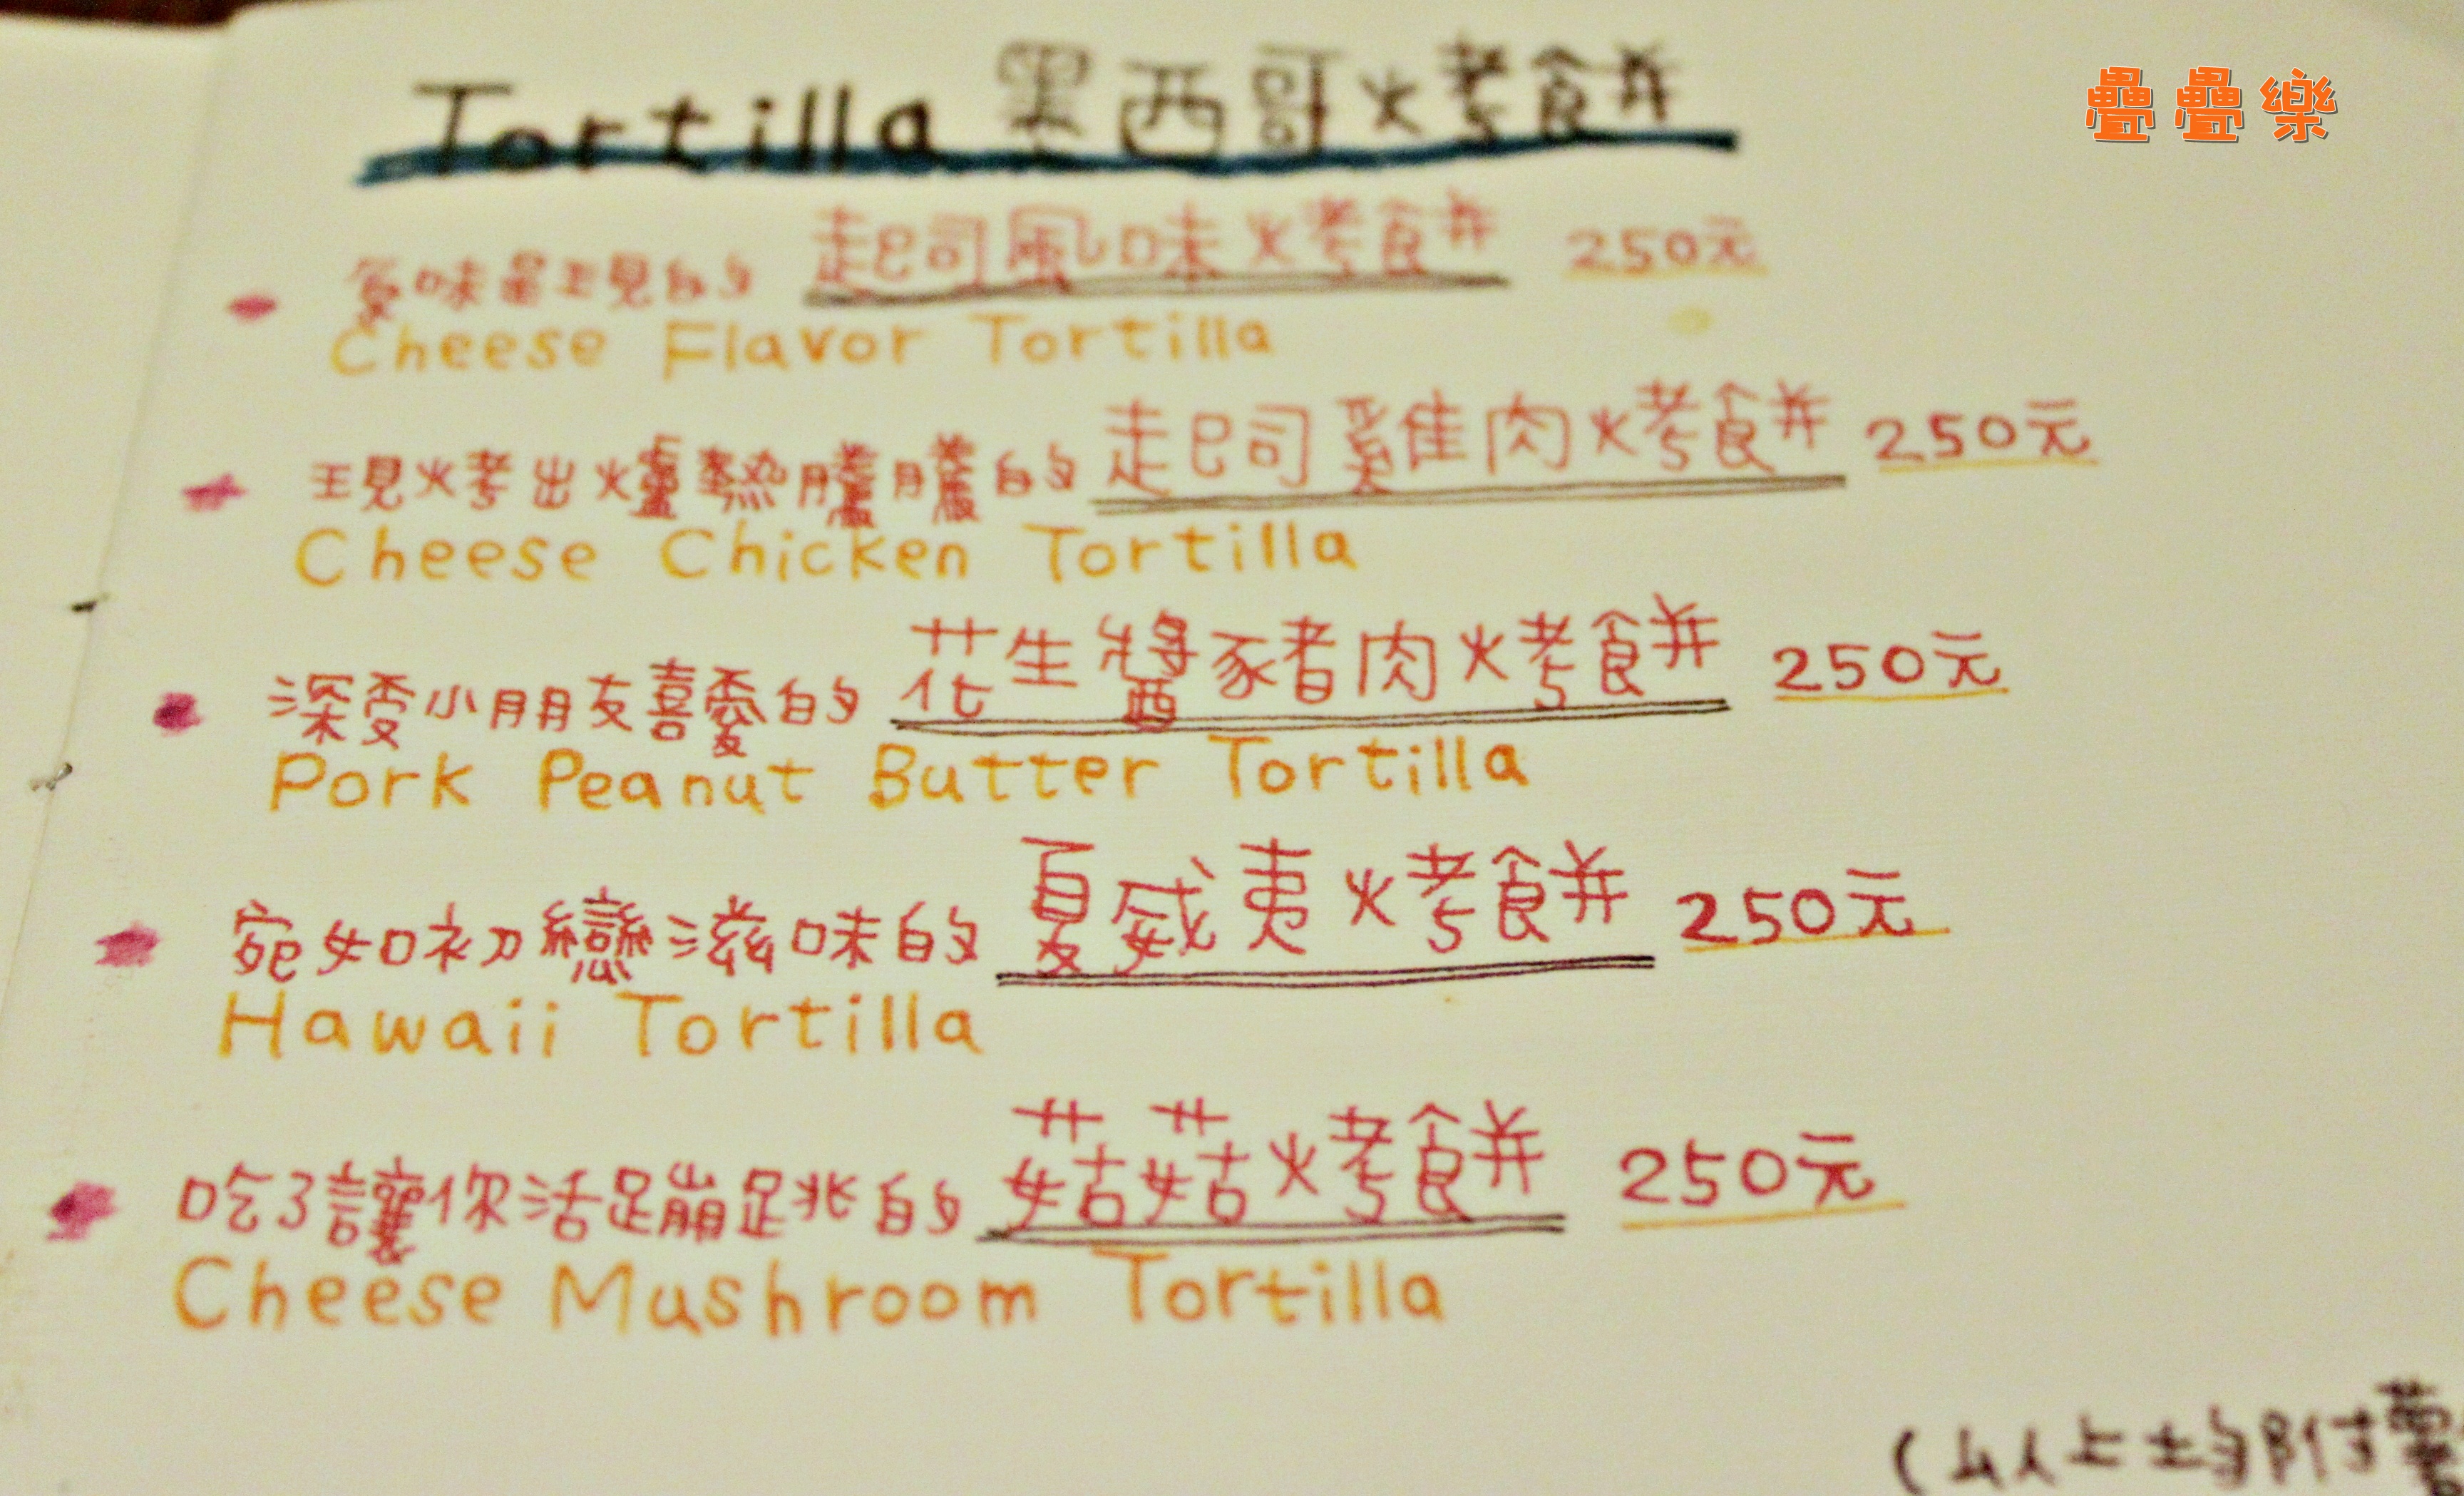 Tortilla 墨西哥烤餅
疊疊樂
起司風味烤餅 250元
Cheese Flavor Tortilla
現烤出爐熱騰騰的 起司雞肉烤餅 250元
Cheese Chicken Tortilla
深受小朋友喜愛的 花生醬豬肉烤餅 250元
Pork Peanut Butter Tortilla
宛如初戀滋味的 夏威夷烤餅 250元
Hawaii Tortilla
吃了讓你活蹦跳的 菇菇烤餅 250元
Cheese Mushroom Tortilla
(以上均附薯